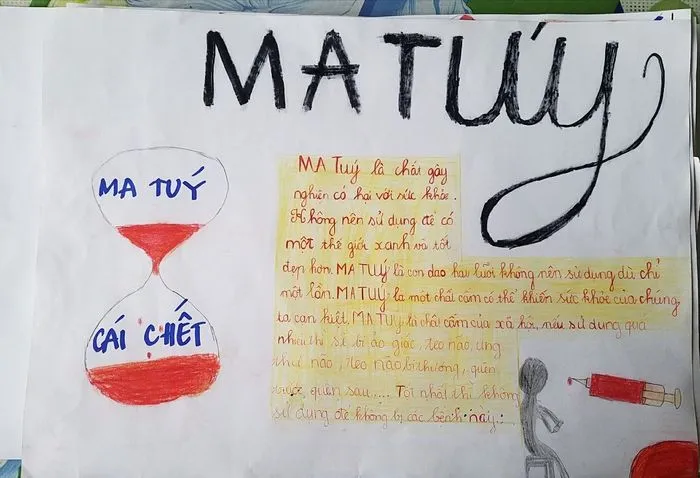 MA TUÝ
MA TUÝ
CÁI CHẾT
MA TUý là chất gây
nghiện có hại với sức khỏe.
Không nên sử dụng để có
một thế giới xanh và tốt
đẹp hơn. MA TUÝ là con dao hai lưỡi không nên sử dụng dù chỉ
một lần. MA TUÝ là một chất cấm có thể khiến sức khỏe của chúng
ta cạn kiệt. MA TUÝ là chất cấm của xã hội, nếu sử dụng quá
nhiều thì sẽ bị ảo giác, teo não, ung
thư não, teo não bị thương, quên
trước, quên sau.... Tốt nhất thì không
sử dụng để không bị các bệnh này.